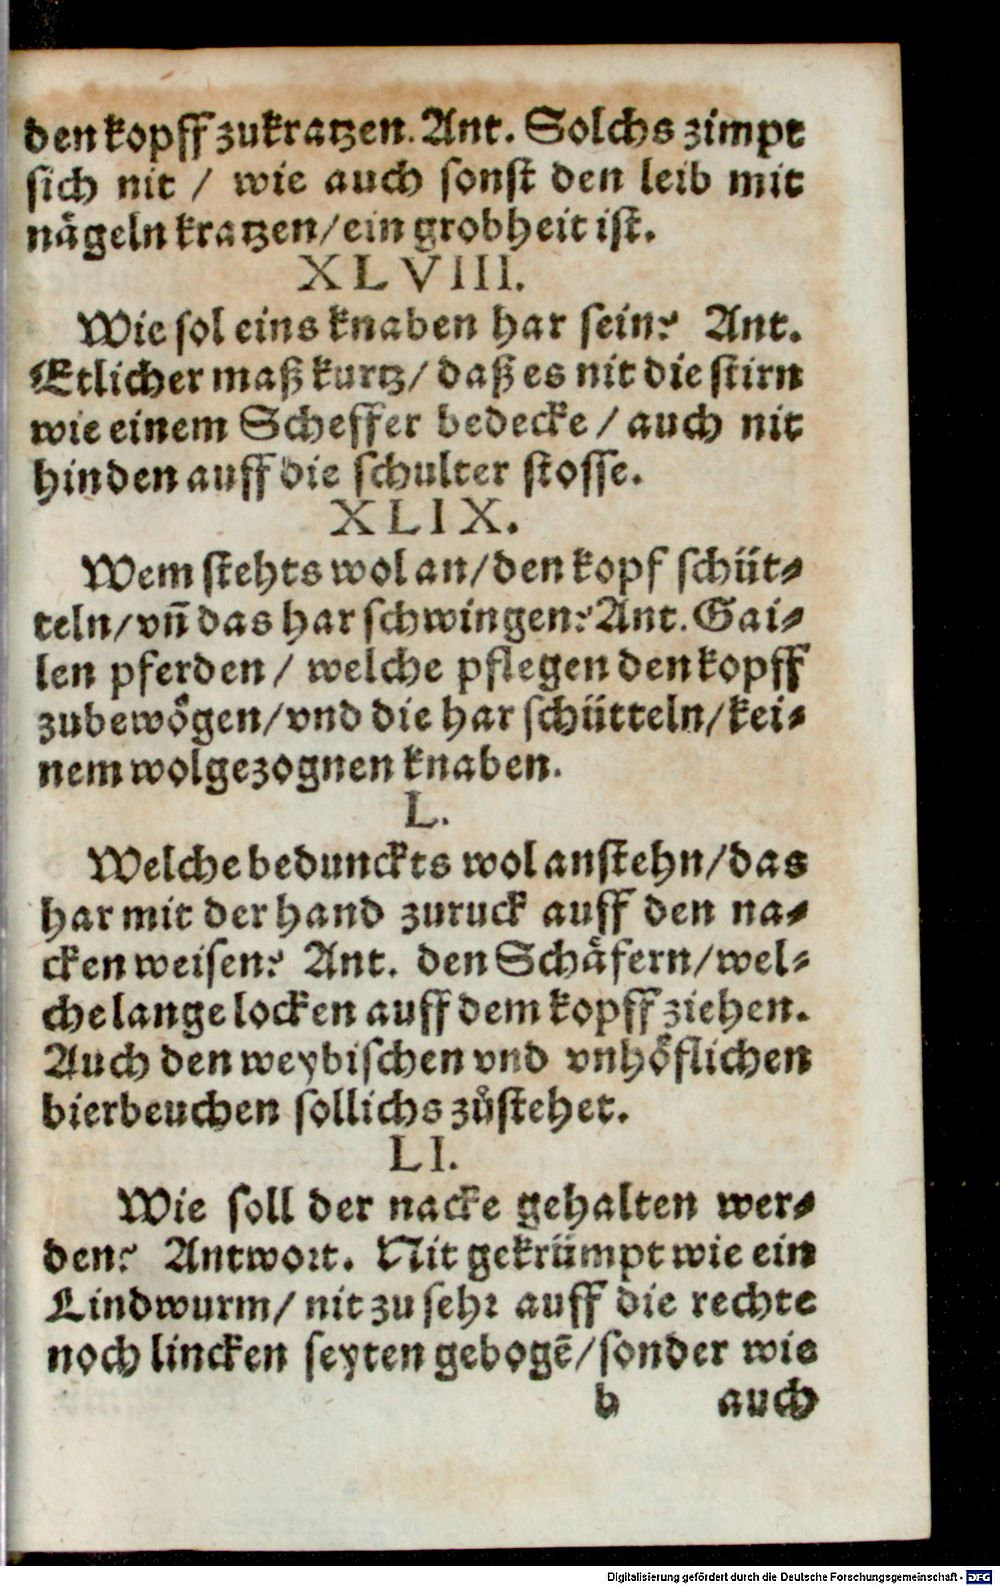 den kopff zukratzen. Ant. Solchs zimpt
sich nit / wie auch sonst den leib mit
naͤgeln kratzen/ein grobheit ist.
XLVIII.
Wie sol eins knaben har sein? Ant.
Etlicher maß kurtz/ daß es nit die stirn
wie einem Scheffer bedecke / auch nit
hinden auff die schulter stosse.
XLIX.
Wem stehts wol an/den kopf schüt-
teln/vñ das har schwingen? Ant. Gai-
len pferden/ welche pflegen den kopff
zubewoͤgen/vnd die har schütteln/kei-
nem wolgezognen knaben.
L.
Welche bedunckts wol anstehn/das
har mit der hand zuruck auff den na-
cken weisen? Ant. den Schaͤfern/wel-
che lange locken auff dem kopff ziehen.
Auch den weybischen vnd vnhoͤflichen
bierbeuchen sollichs zůstehet.
LI.
Wie soll der nacke gehalten wer-
den? Antwort. Nit gekrümpt wie ein
Lindwurm/ nit zu sehr auff die rechte
noch lincken seyten gebogẽ/sonder wie
b auch
Digitalisierung gefördert durch die Deutsche Forschungsgemeinschaft - DFG